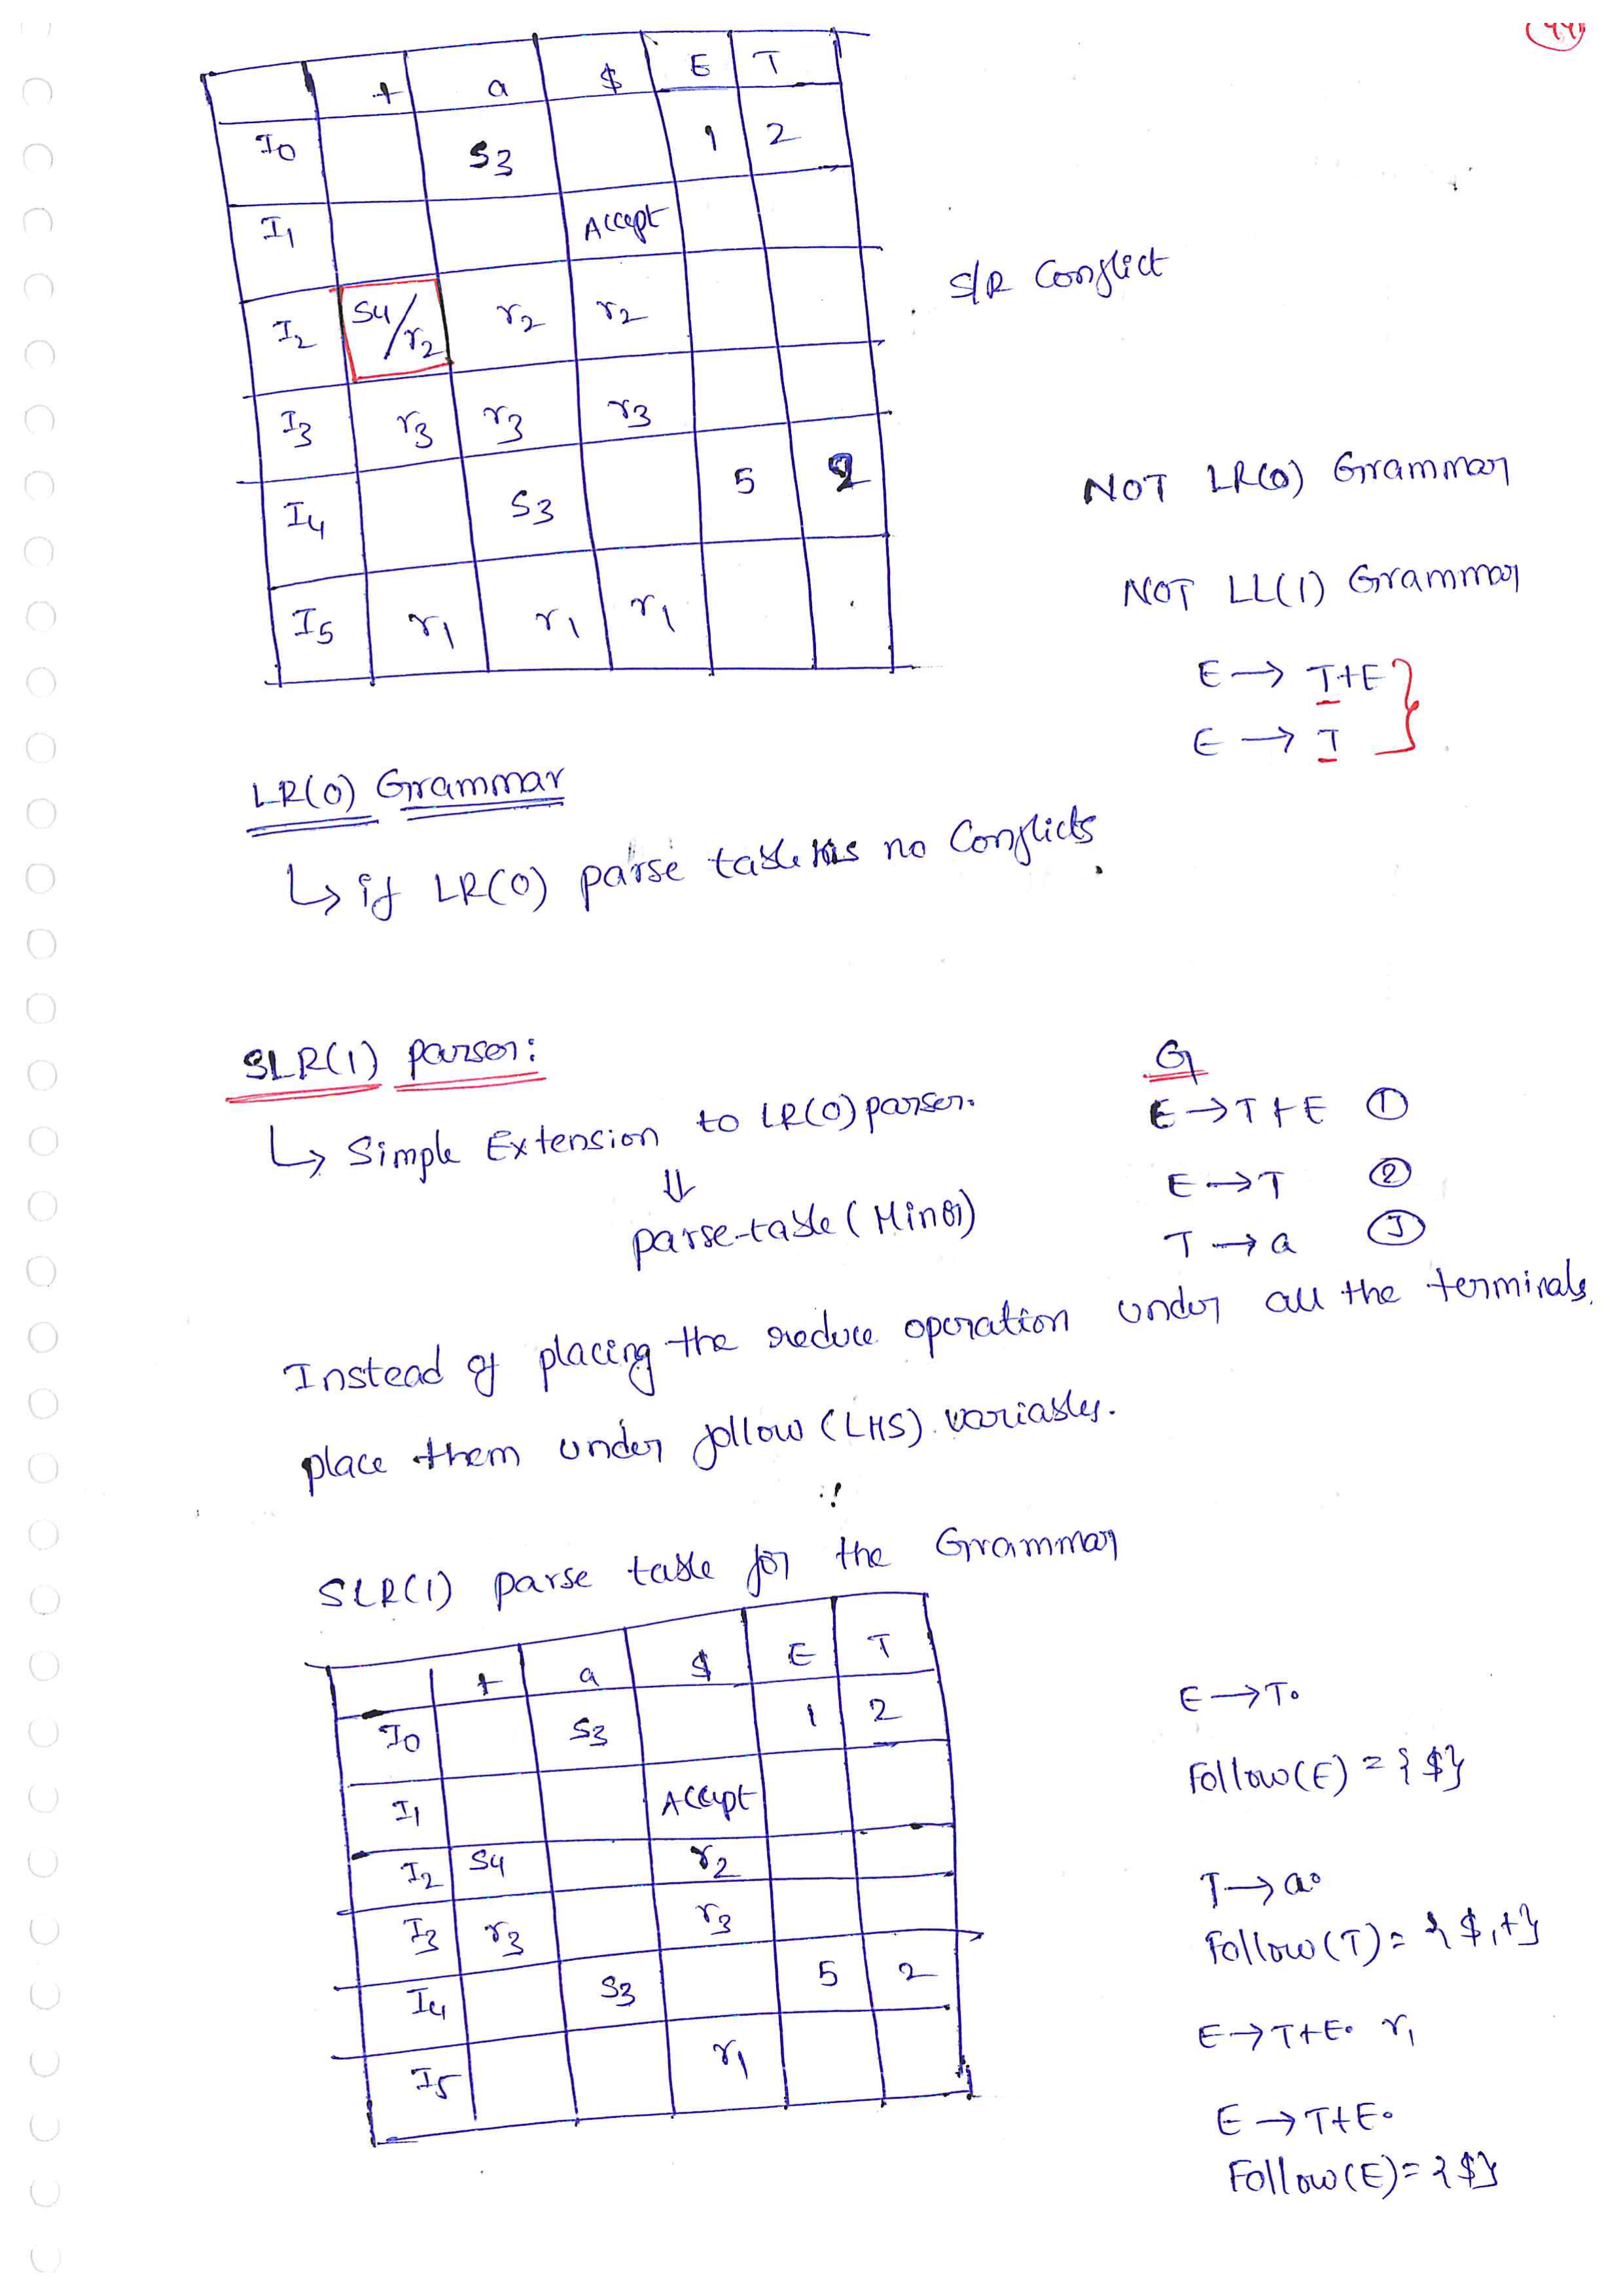 44
+ a $ E T
I0 S3 1 2
I1 Accept
I2 S4/r2 r2 r2
I3 r3 r3 r3
I4 S3 5 2
I5 r1 r1 r1
S/R Conflict
NOT LR(0) Grammar
NOT LL(1) Grammar
E → T+E
E → T
LR(0) Grammar
↳ if LR(0) parse table has no Conflicts.
SLR(1) parser:
↳ Simple Extension to LR(0) parser.
⇓
parse-table (Minor)
G
E → T+E ①
E → T ②
T → a ③
Instead of placing the reduce operation under all the terminals.
place them under follow (LHS) variables.
SLR(1) parse table for the Grammar
+ a $ E T
I0 S3 1 2
I1 Accept
I2 S4 r2
I3 r3 r3
I4 S3 5 2
I5 r1
E → T.
Follow(E) = {$}
T → a.
Follow(T) = {$,+}
E → T+E. r1
E → T+E.
Follow(E) = {$}